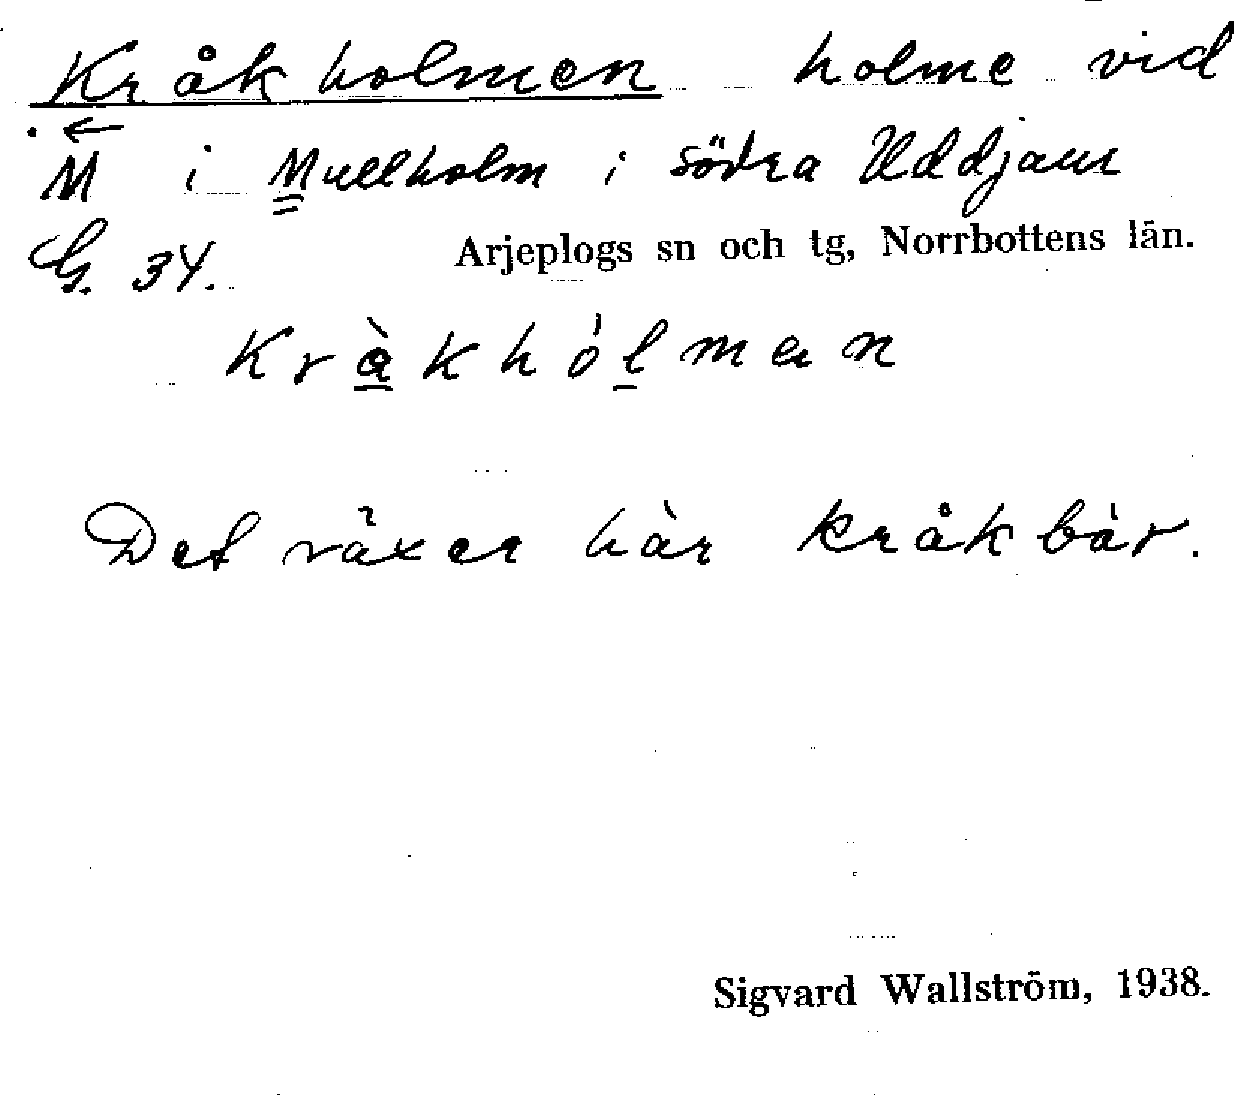 Kråkholmen holme vid
. ←
M i Mullholm i södra Uddjaur
G. 34. Arjeplogs sn och tg, Norrbottens län.
Kràkhólman
Det växer här kråkbär.
Sigvard Wallström, 1938.